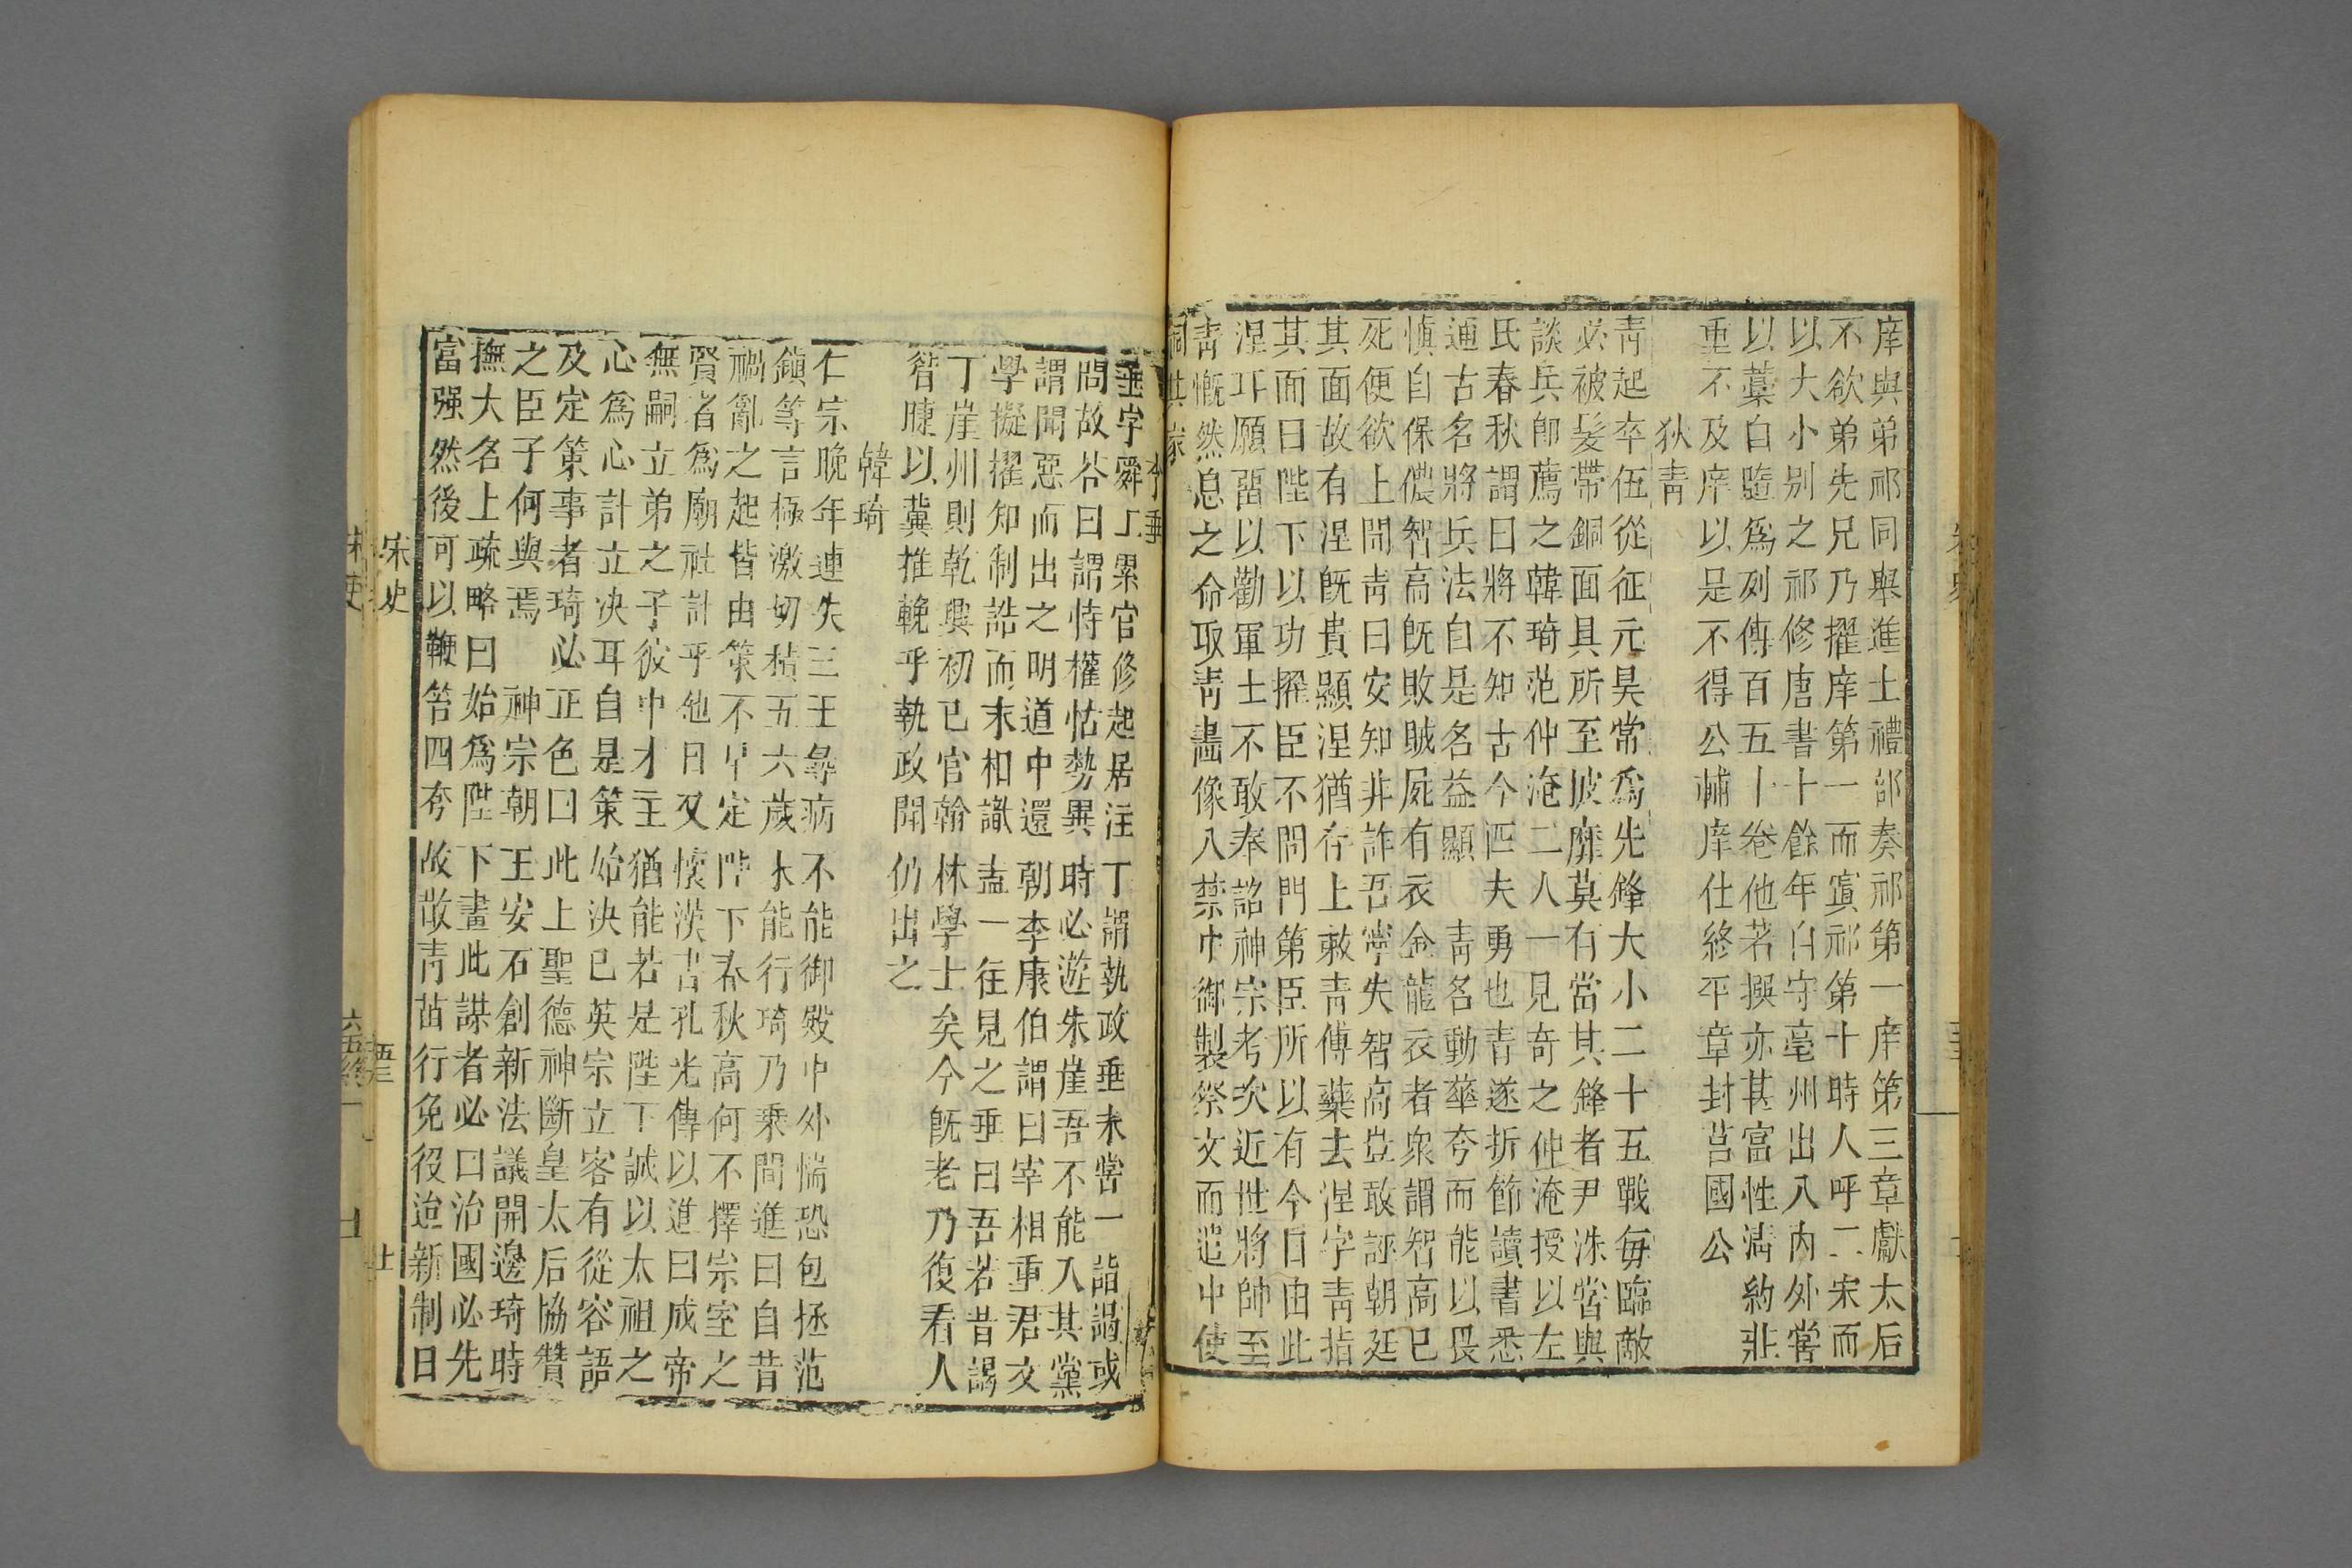 庠與弟祁同舉進士禮部奏祁第一庠第三章獻太后
不欲弟先兄乃擢庠第一而寘祁第十時人呼二宋而
以大小别之祁修唐書十餘年自守亳州出入内外嘗
以藁自隨爲列傳百五十卷他著撰亦甚富性淸約莊
重不及庠以是不得公輔庠仕終平章封莒國公
狄靑
靑起卒伍從征元昊常爲先鋒大小二十五戰每臨敵
必被髮帶銅面具所至披靡莫有當其鋒者尹洙嘗與
談兵卽薦之韓琦范仲淹二人一見奇之仲淹授以左
氏春秋謂曰將不知古今匹夫勇也靑遂折節讀書悉
通古名將兵法自是名益顯 靑名動華夸而能以畏
愼自保儂智高旣敗賊屍有衣金龍衣者衆謂智高已
死便欲上聞靑曰安知非詐吾寧失智高豈敢誣朝廷
其面故有涅旣貴顯涅猶存上敕靑傅藥去涅字靑指
其面曰陛下以功擢臣不問門第臣所以有今日由此
涅耳願留以勸軍士不敢奉詔神宗考次近世將帥至
靑慨然息之命取靑畵像入禁中御製祭文而遣中使
祠其家
李垂
垂字舜工累官修起居注丁謂執政垂未嘗一詣謁或
問故答曰謂恃權怙勢異時必遊朱崖吾不能入其黨
謂聞惡而出之明道中還朝李康伯謂曰宰相重君文
學擬擢知制誥而未相識盍一往見之垂曰吾若昔謁
丁崖州則乾興初已官翰林學士矣今旣老乃復看人
眥睫以冀推輓乎執政聞仍出之
韓琦
仁宗晚年連失三王暴病不能御殿中外惴恐包拯范
鎭等言極激切積五六歲未能行琦乃乘間進曰自昔
禍亂之起皆由策不早定陛下春秋高何不擇宗室之
賢者爲廟社計乎他日又懷漢書孔光傳以進曰成帝
無嗣立弟之子彼中才主猶能若是陛下誠以太祖之
心爲心計立决耳自是策始決已英宗立客有從容語
及定策事者琦必正色曰此上聖德神斷皇太后協贊
之臣子何與焉 神宗朝王安石創新法議開邊琦時
撫大名上疏略曰始爲陛下畫此謀者必曰治國必先
富强然後可以鞭笞四夸故散靑苗行免役迨新制日
宋史